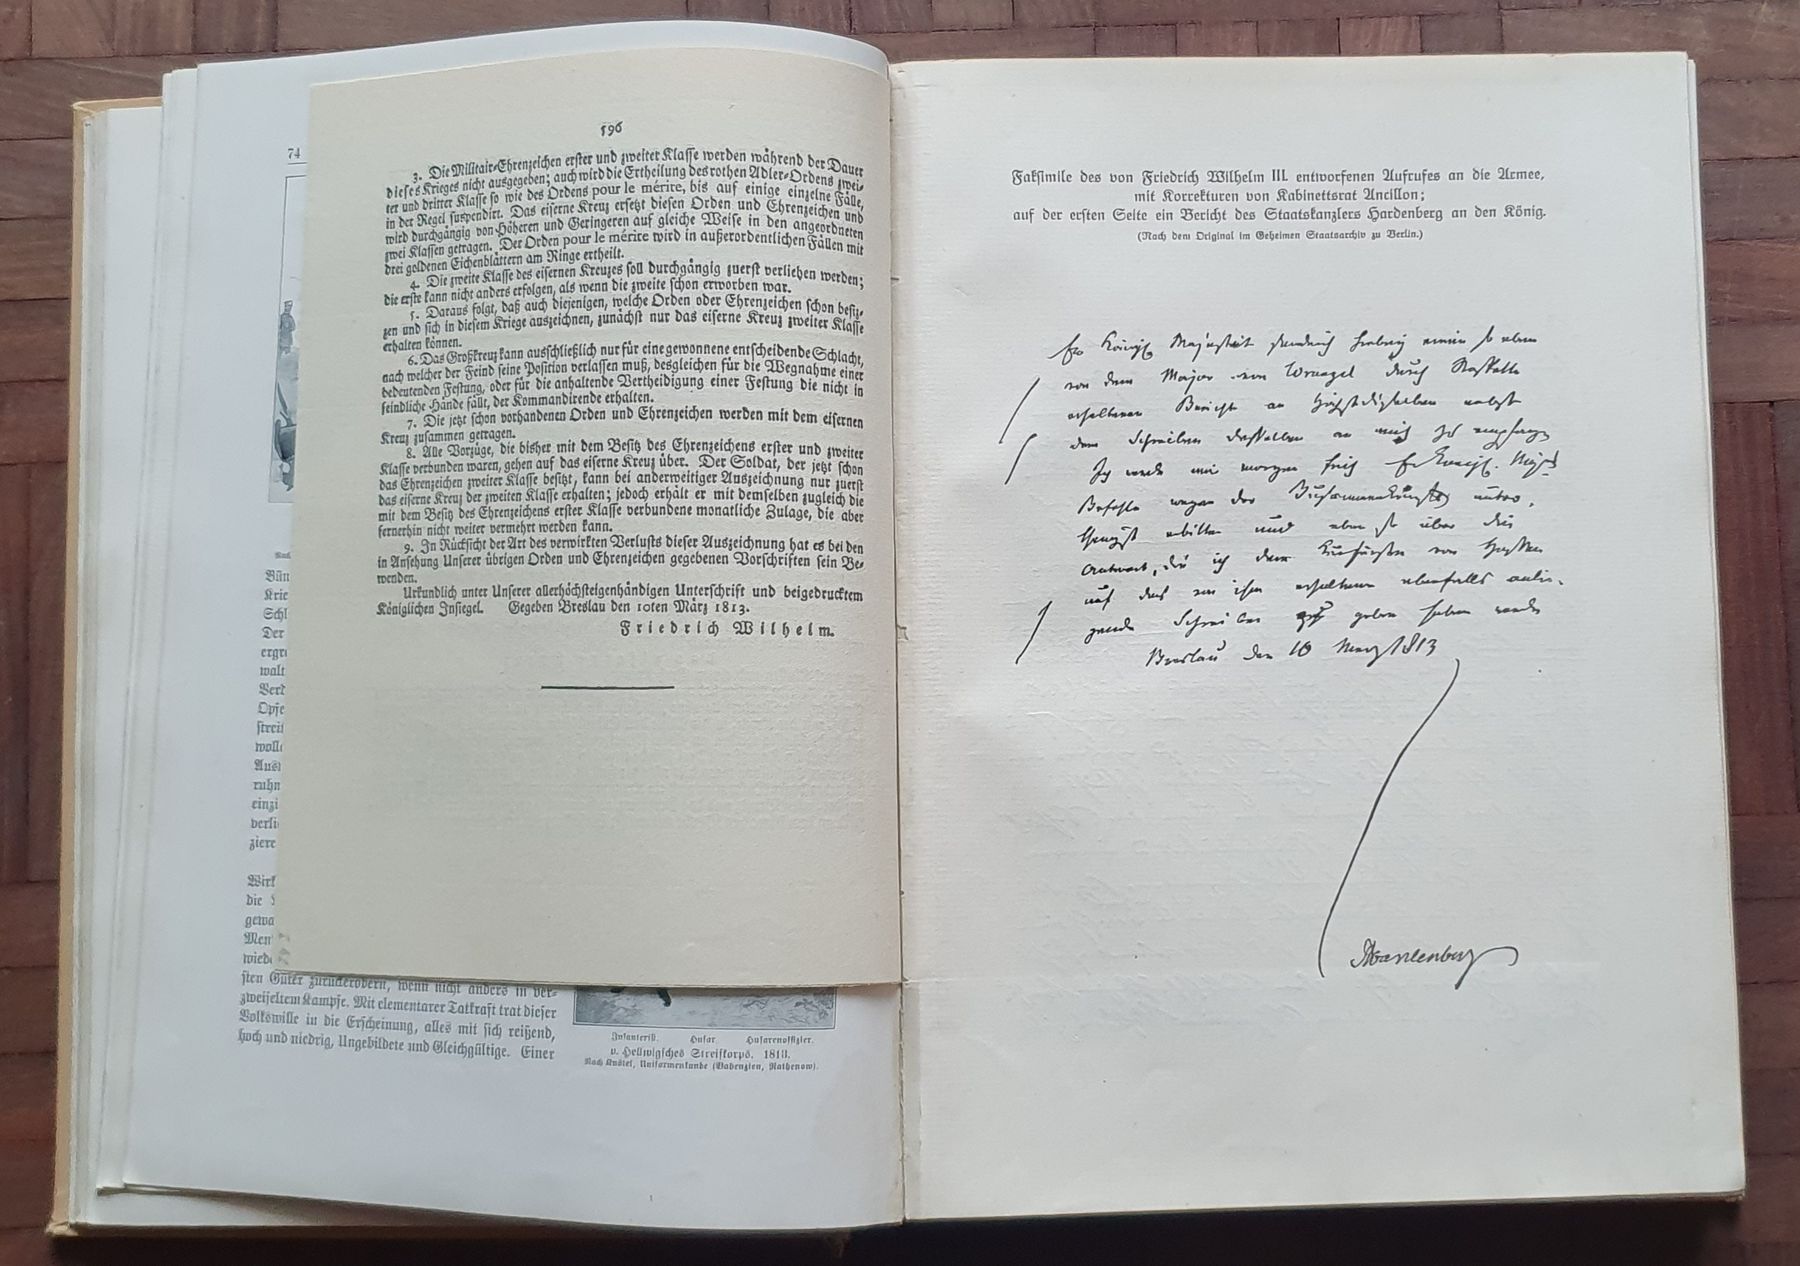 74
Bün
Krie
Schl
Der
ergr
walt
Verd
Opfe
streit
woll
Aus
ruhn
einzi
verli
ziere
Wirk
die
gewa
Men
wiede
sten Güter zurückerobern, wenn nicht anders in ver-
zweifeltem Kampfe. Mit elementarer Tatkraft trat dieser
Volkswille in die Erscheinung, alles mit sich reißend,
hoch und niedrig, Ungebildete und Gleichgültige. Einer
Infanterist. Husar. Husarenoffizier.
v. Hellwigsches Streifkorps. 1813.
Nach Knötel, Uniformenkunde (Babenzien, Rathenow).
596
3. Die Militair-Ehrenzeichen erster und zweiter Klasse werden während der Dauer
dieses Krieges nicht ausgegeben; auch wird die Ertheilung des rothen Adler-Ordens zwei-
ter und dritter Klasse so wie des Ordens pour le mérite, bis auf einige einzelne Fälle,
in der Regel suspendirt. Das eiserne Kreuz ersetzt diesen Orden und Ehrenzeichen und
wird durchgängig von Höheren und Geringeren auf gleiche Weise in den angeordneten
zwei Klassen getragen. Der Orden pour le mérite wird in außerordentlichen Fällen mit
drei goldenen Eichenblättern am Ringe ertheilt.
4. Die zweite Klasse des eisernen Kreuzes soll durchgängig zuerst verliehen werden;
die erste kann nicht anders erfolgen, als wenn die zweite schon erworben war.
5. Daraus folgt, daß auch diejenigen, welche Orden oder Ehrenzeichen schon besit-
zen und sich in diesem Kriege auszeichnen, zunächst nur das eiserne Kreuz zweiter Klasse
erhalten können.
6. Das Großkreuz kann ausschließlich nur für eine gewonnene entscheidende Schlacht,
nach welcher der Feind seine Position verlassen muß, desgleichen für die Wegnahme einer
bedeutenden Festung, oder für die anhaltende Vertheidigung einer Festung die nicht in
feindliche Hände fällt, der Kommandirende erhalten.
7. Die jetzt schon vorhandenen Orden und Ehrenzeichen werden mit dem eisernen
Kreuz zusammen getragen.
8. Alle Vorzüge, die bisher mit dem Besitz des Ehrenzeichens erster und zweiter
Klasse verbunden waren, gehen auf das eiserne Kreuz über. Der Soldat, der jetzt schon
das Ehrenzeichen zweiter Klasse besitzt, kann bei anderweitiger Auszeichnung nur zuerst
das eiserne Kreuz der zweiten Klasse erhalten; jedoch erhält er mit demselben zugleich die
mit dem Besitz des Ehrenzeichens erster Klasse verbundene monatliche Zulage, die aber
fernerhin nicht weiter vermehrt werden kann.
9. In Rücksicht der Art des verwirkten Verlusts dieser Auszeichnung hat es bei den
in Ansehung Unserer übrigen Orden und Ehrenzeichen gegebenen Vorschriften sein Be-
wenden.
Urkundlich unter Unserer allerhöchsteigenhändigen Unterschrift und beigedrucktem
Königlichen Insiegel. Gegeben Breslau den 10ten März 1813.
Friedrich Wilhelm.
Faksimile des von Friedrich Wilhelm III. entworfenen Aufrufes an die Armee,
mit Korrekturen von Kabinettsrat Ancillon;
auf der ersten Seite ein Bericht des Staatskanzlers Hardenberg an den König.
(Nach dem Original im Geheimen Staatsarchiv zu Berlin.)
Ew Königl Majestät einen so eben
von dem Major von Wrangel durch Staffette
erhaltenen Bericht an Höchstdieselben nebst
dem Schreiben desselben an mich zu empfangen
Ich werde mir morgen früh Ew Königl. Maj
Befehle wegen der Zusammenkunft
erbitten und eben so über die
Antwort, die ich dem Kurfürsten von Hessen
auf das von ihm erhaltene ebenfalls anlie-
gende Schreiben geben werde
Breslau den 16 März 1813
Hardenberg